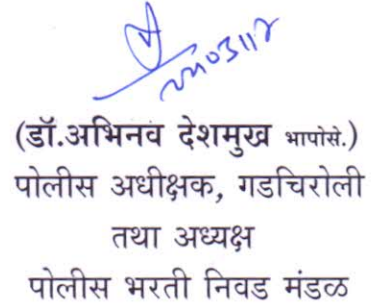 (डॉ.अभिनव देशमुख भापोसे.)
पोलीस अधीक्षक, गडचिरोली
तथा अध्यक्ष
पोलीस भरती निवड मंडळ